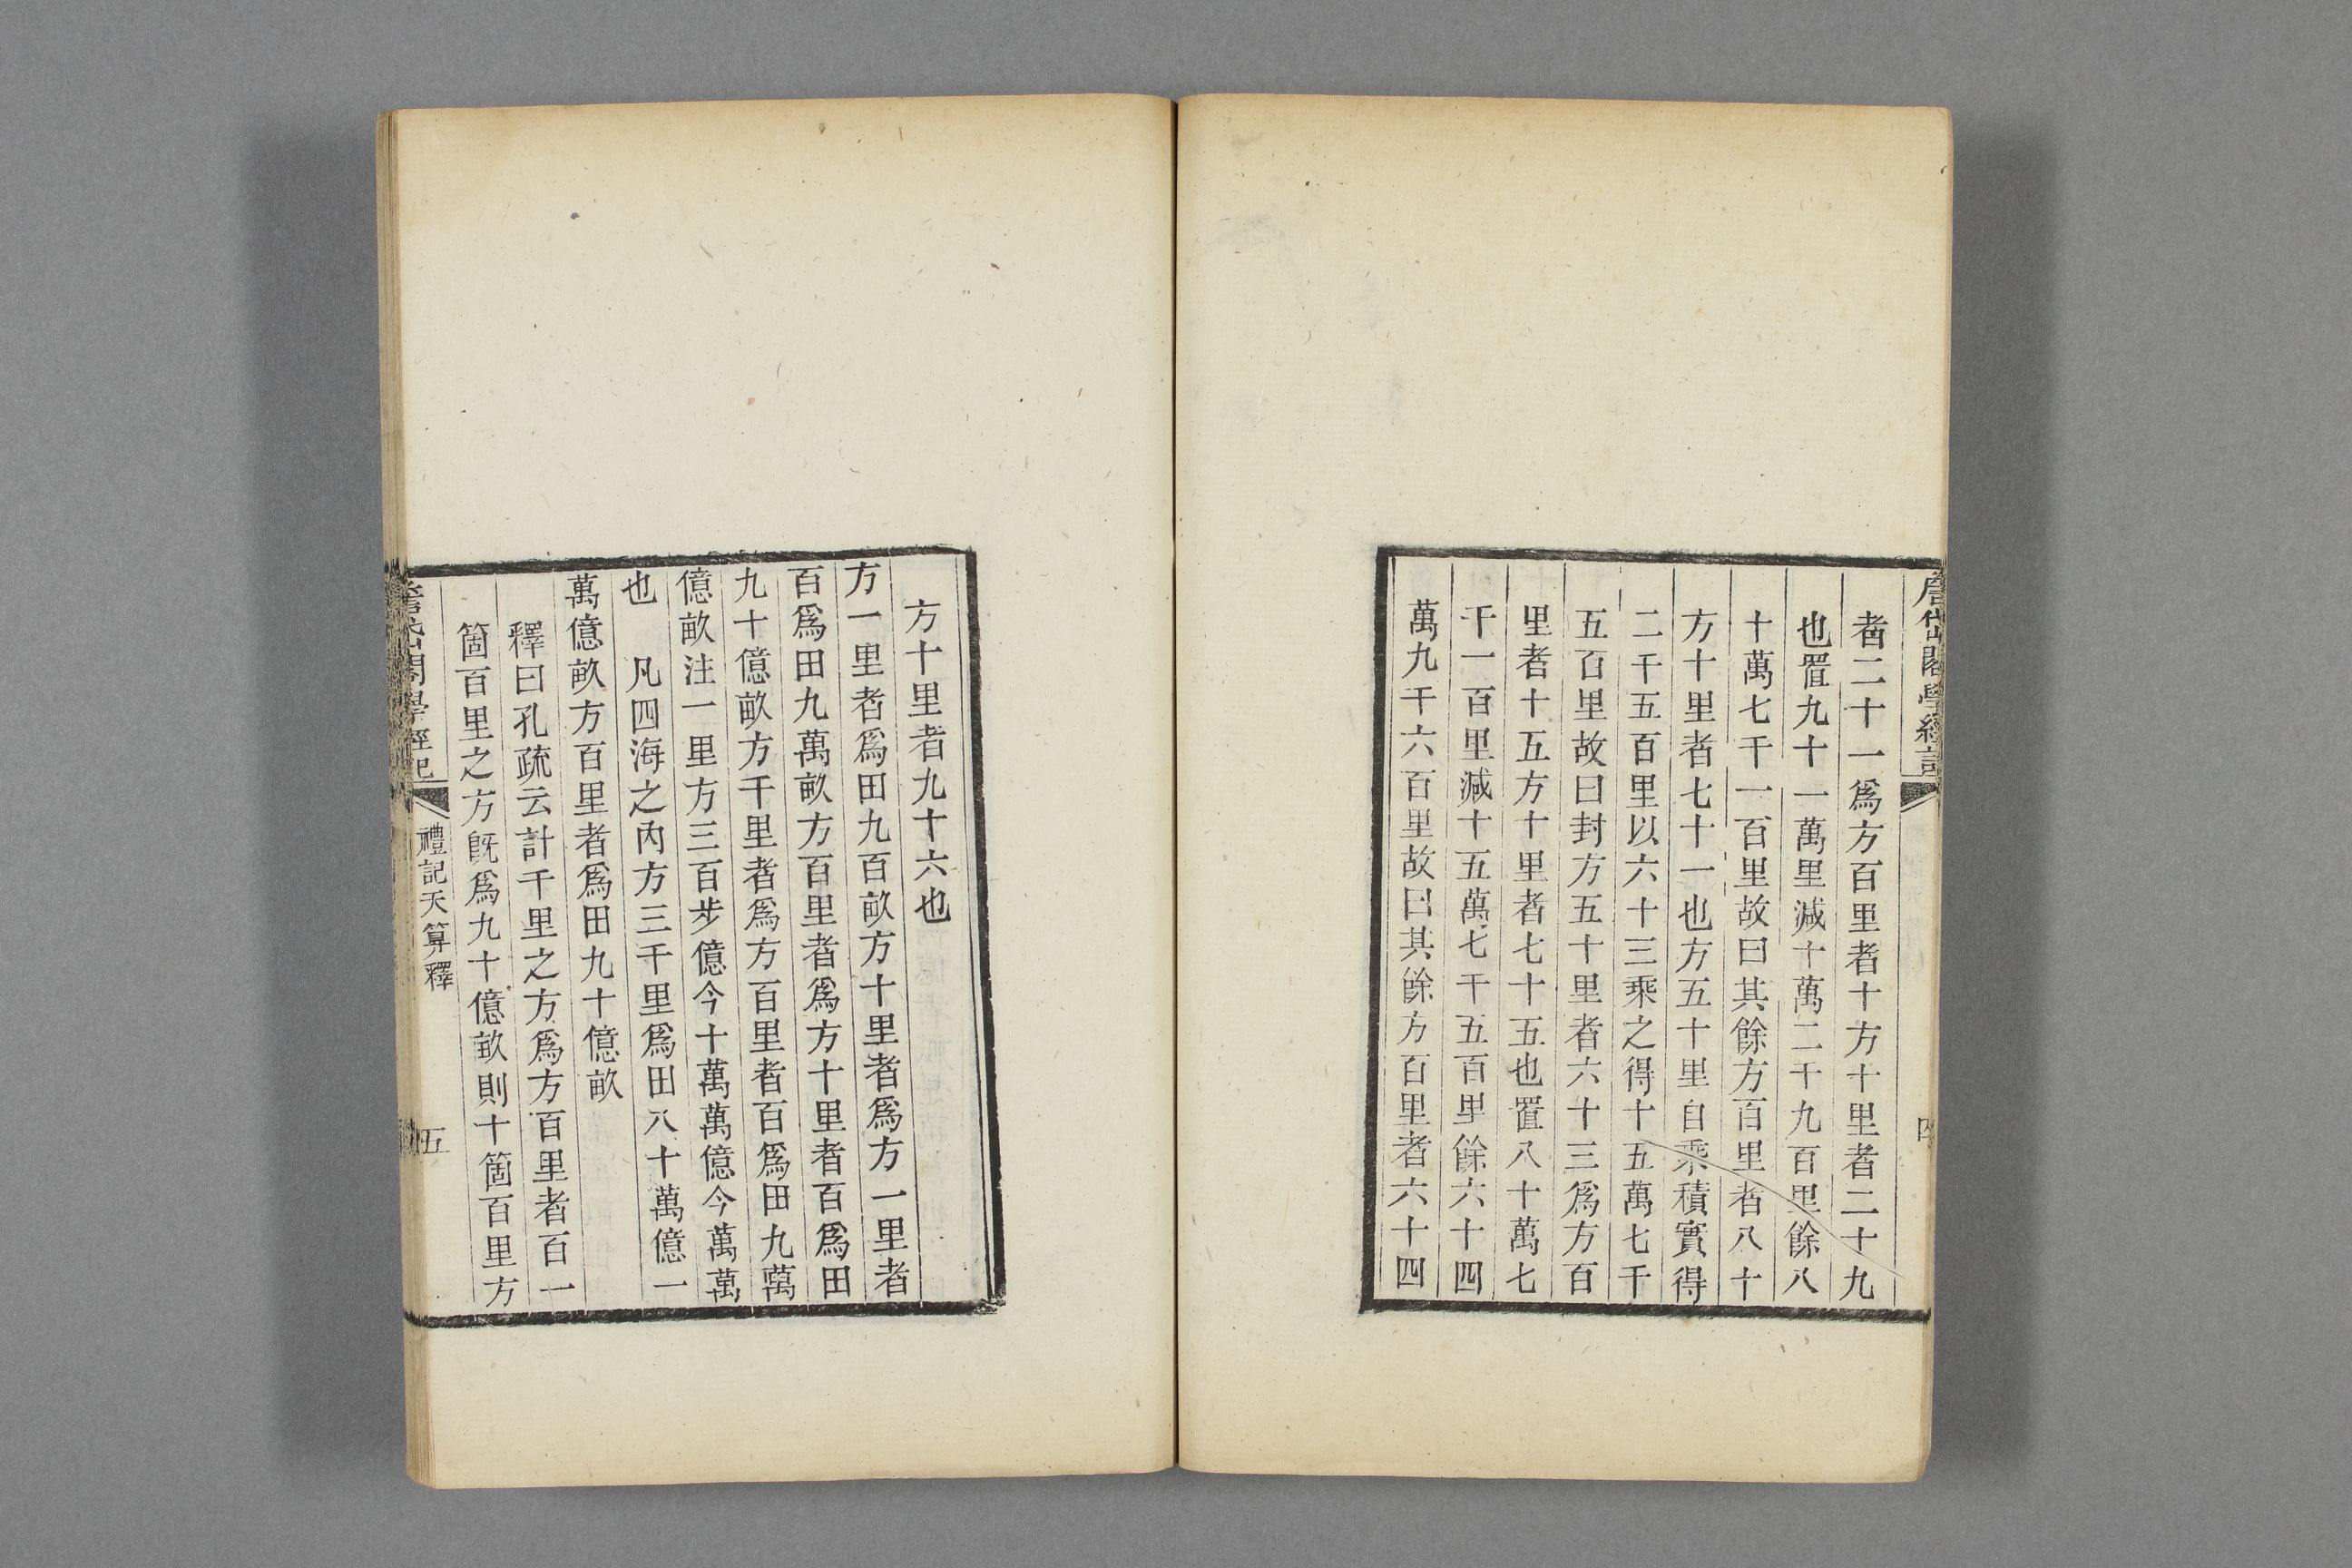 者二十一爲方百里者十方十里者二十九
也置九十一萬里減十萬二千九百里餘八
十萬七千一百里故曰其餘方百里者八十
方十里者七十一也方五十里自乘積實得
二千五百里以六十三乘之得十五萬七千
五百里故曰封方五十里者六十三爲方百
里者十五方十里者七十五也置八十萬七
千一百里減十五萬七千五百里餘六十四
萬九千六百里故曰其餘方百里者六十四
方十里者九十六也
方一里者爲田九百畝方十里者爲方一里者
百爲田九萬畝方百里者爲方十里者百爲田
九十億畝方千里者爲方百里者百爲田九萬
億畝注一里方三百步億今十萬萬億今萬萬
也　凡四海之內方三千里爲田八十萬億一
萬億畝方百里者爲田九十億畝
釋曰孔疏云計千里之方爲方百里者百一
箇百里之方旣爲九十億畝則十箇百里方
禮記天算釋
五